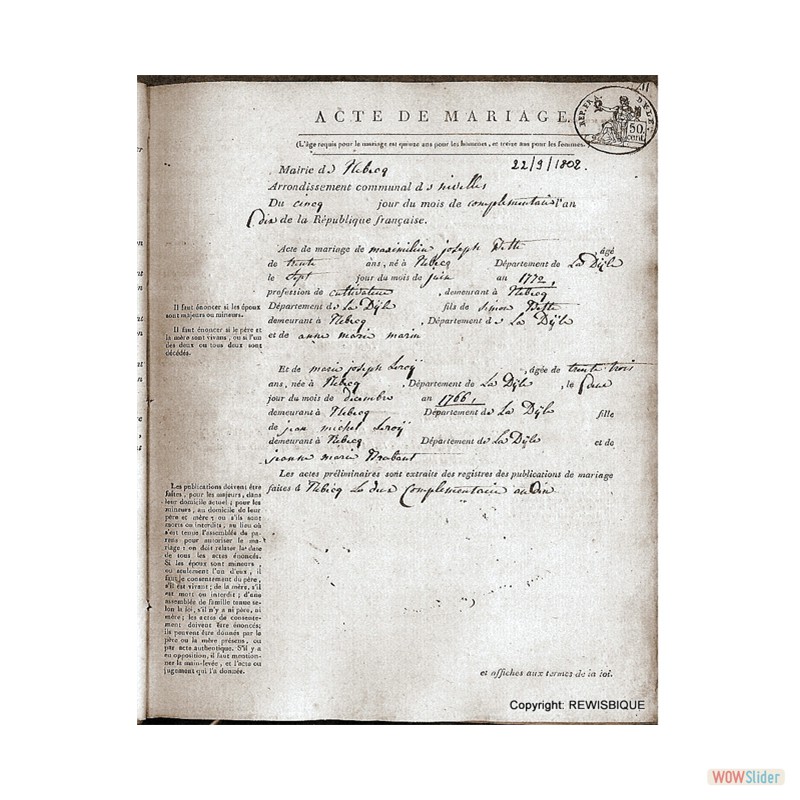 ACTE DE MARIAGE.
RÉP. FRA. DE LE
50 cent.
(L'âge requis pour le mariage est quinze ans pour les hommes, et treize ans pour les femmes.
22/9/1802.
Mairie de Rebecq
Arrondissement communal de nivelles
Du cincq jour du mois de complementair l'an
dix de la République française.
Acte de mariage de maximilien joseph âgé
de trente ans, né à Rebecq Département de La Dÿle
le sept jour du mois de juin an 1772,
profession de cultivateur, demeurant à Rebecq
Département de La Dÿle fils de simon
demeurant à Rebecq, Département de La Dÿle
et de anne marie marin
Il faut énoncer si les époux
sont majeurs ou mineurs.
Il faut énoncer si le père et
la mère sont vivans, ou si l'un
des deux ou tous deux sont
décédés.
Et de marie joseph Leroÿ, âgée de trente trois
ans, née à Rebecq, Département de La Dÿle, le
jour du mois de decembre an 1766,
demeurant à Rebecq Département de La Dÿle fille
de jean michel Leroÿ
demeurant à Rebecq Département de La Dÿle et de
jeanne marie
Les actes préliminaires sont extraits des registres des publications de mariage
faites à Rebecq Le deux Complementair an Dix
Les publications doivent être
faites, pour les majeurs, dans
leur domicile actuel; pour les
mineurs, au domicile de leur
père et mère; ou s'ils sont
morts ou interdits, au lieu où
s'est tenue l'assemblée de pa-
rens pour autoriser le ma-
riage: on doit relater la date
de tous les actes énoncés.
Si les époux sont mineurs,
ou seulement l'un d'eux, il
faut le consentement du père,
s'il est vivant; de la mère, s'il
est mort ou interdit; d'une
assemblée de famille tenue se-
lon la loi, s'il n'y a ni père, ni
mère; les actes de consente-
ment doivent être énoncés;
ils peuvent être donnés par le
père ou la mère présens, ou
par acte authentique. S'il y a
eu opposition, il faut mention-
ner la main-levée, et l'acte ou
jugement qui l'a donnée.
et affiches aux termes de la loi.
Copyright: REWISBIQUE
WOWSlider